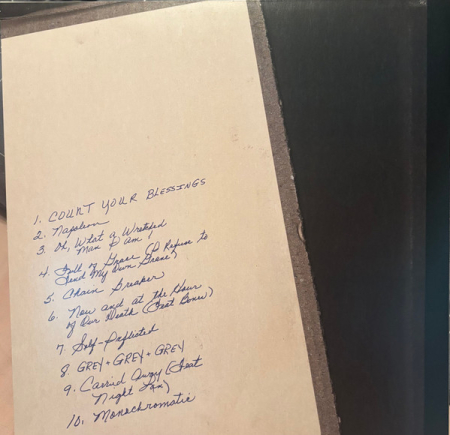 1. COUNT YOUR BLESSINGS
2. Napoleon
3. Oh, What a Wretched
Man I Am!
4. Full of Grace (I Refuse to
Tend My Own Grave)
5. Chain Breaker
6. Now and at the Hour
of Our Death (feat Bones)
7. Self-Inflicted
8 GREY + GREY + GREY
9. Carried Away (feat
Night Lex)
10. Monochromatic